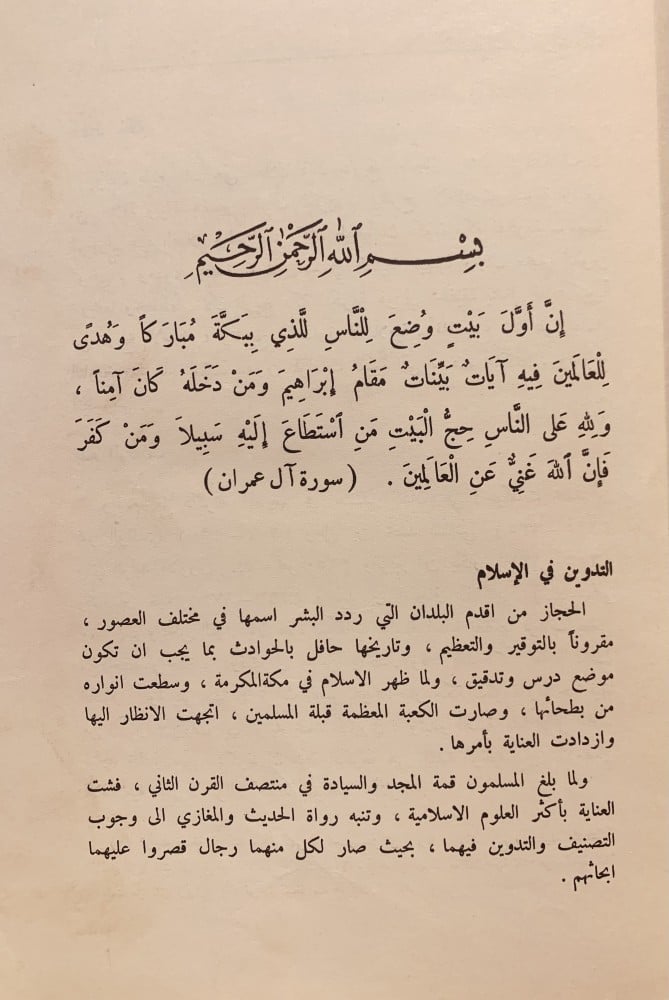 بِسْمِ ٱللَّهِ ٱلرَّحْمٰنِ ٱلرَّحِيمِ
إِنَّ أَوَّلَ بَيْتٍ وُضِعَ لِلنَّاسِ لَلَّذِي بِبَكَّةَ مُبَارَكاً وَهُدًى
لِلْعَالَمِينَ فِيهِ آيَاتٌ بَيِّنَاتٌ مَقَامُ إِبْرَاهِيمَ وَمَنْ دَخَلَهُ كَانَ آمِناً ،
وَلِلّٰهِ عَلَى النَّاسِ حِجُّ الْبَيْتِ مَنِ ٱسْتَطَاعَ إِلَيْهِ سَبِيلاَ وَمَنْ كَفَرَ
فَإِنَّ ٱللهَ غَنِيٌّ عَنِ الْعَالَمِينَ . (سورة آل عمران)
التدوين في الإسلام
الحجاز من اقدم البلدان التي ردد البشر اسمها في مختلف العصور ،
مقروناً بالتوقير والتعظيم ، وتاريخها حافل بالحوادث بما يجب ان تكون
موضع درس وتدقيق ، ولما ظهر الاسلام في مكة المكرمة ، وسطعت انواره
من بطحائها ، وصارت الكعبة المعظمة قبلة المسلمين ، اتجهت الانظار اليها
وازدادت العناية بأمرها .
ولما بلغ المسلمون قمة المجد والسيادة في منتصف القرن الثاني ، فشت
العناية بأكثر العلوم الاسلامية ، وتنبه رواة الحديث والمغازي الى وجوب
التصنيف والتدوين فيهما ، بحيث صار لكل منهما رجال قصروا عليهما
ابحاثهم .